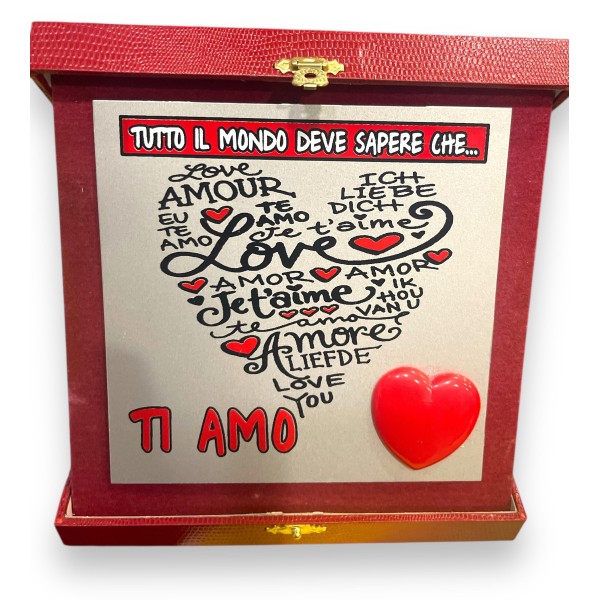 TUTTO IL MONDO DEVE SAPERE CHE...
Love
AMOUR
ICH
LIEBE
DICH
EU
TE
AMO
TE
AMO
Je t'aime
Love
AMOR
AMOR
Je t'aime
IK
HOU
VAN U
te amo
Amore
LIEFDE
LOVE
YOU
TI AMO